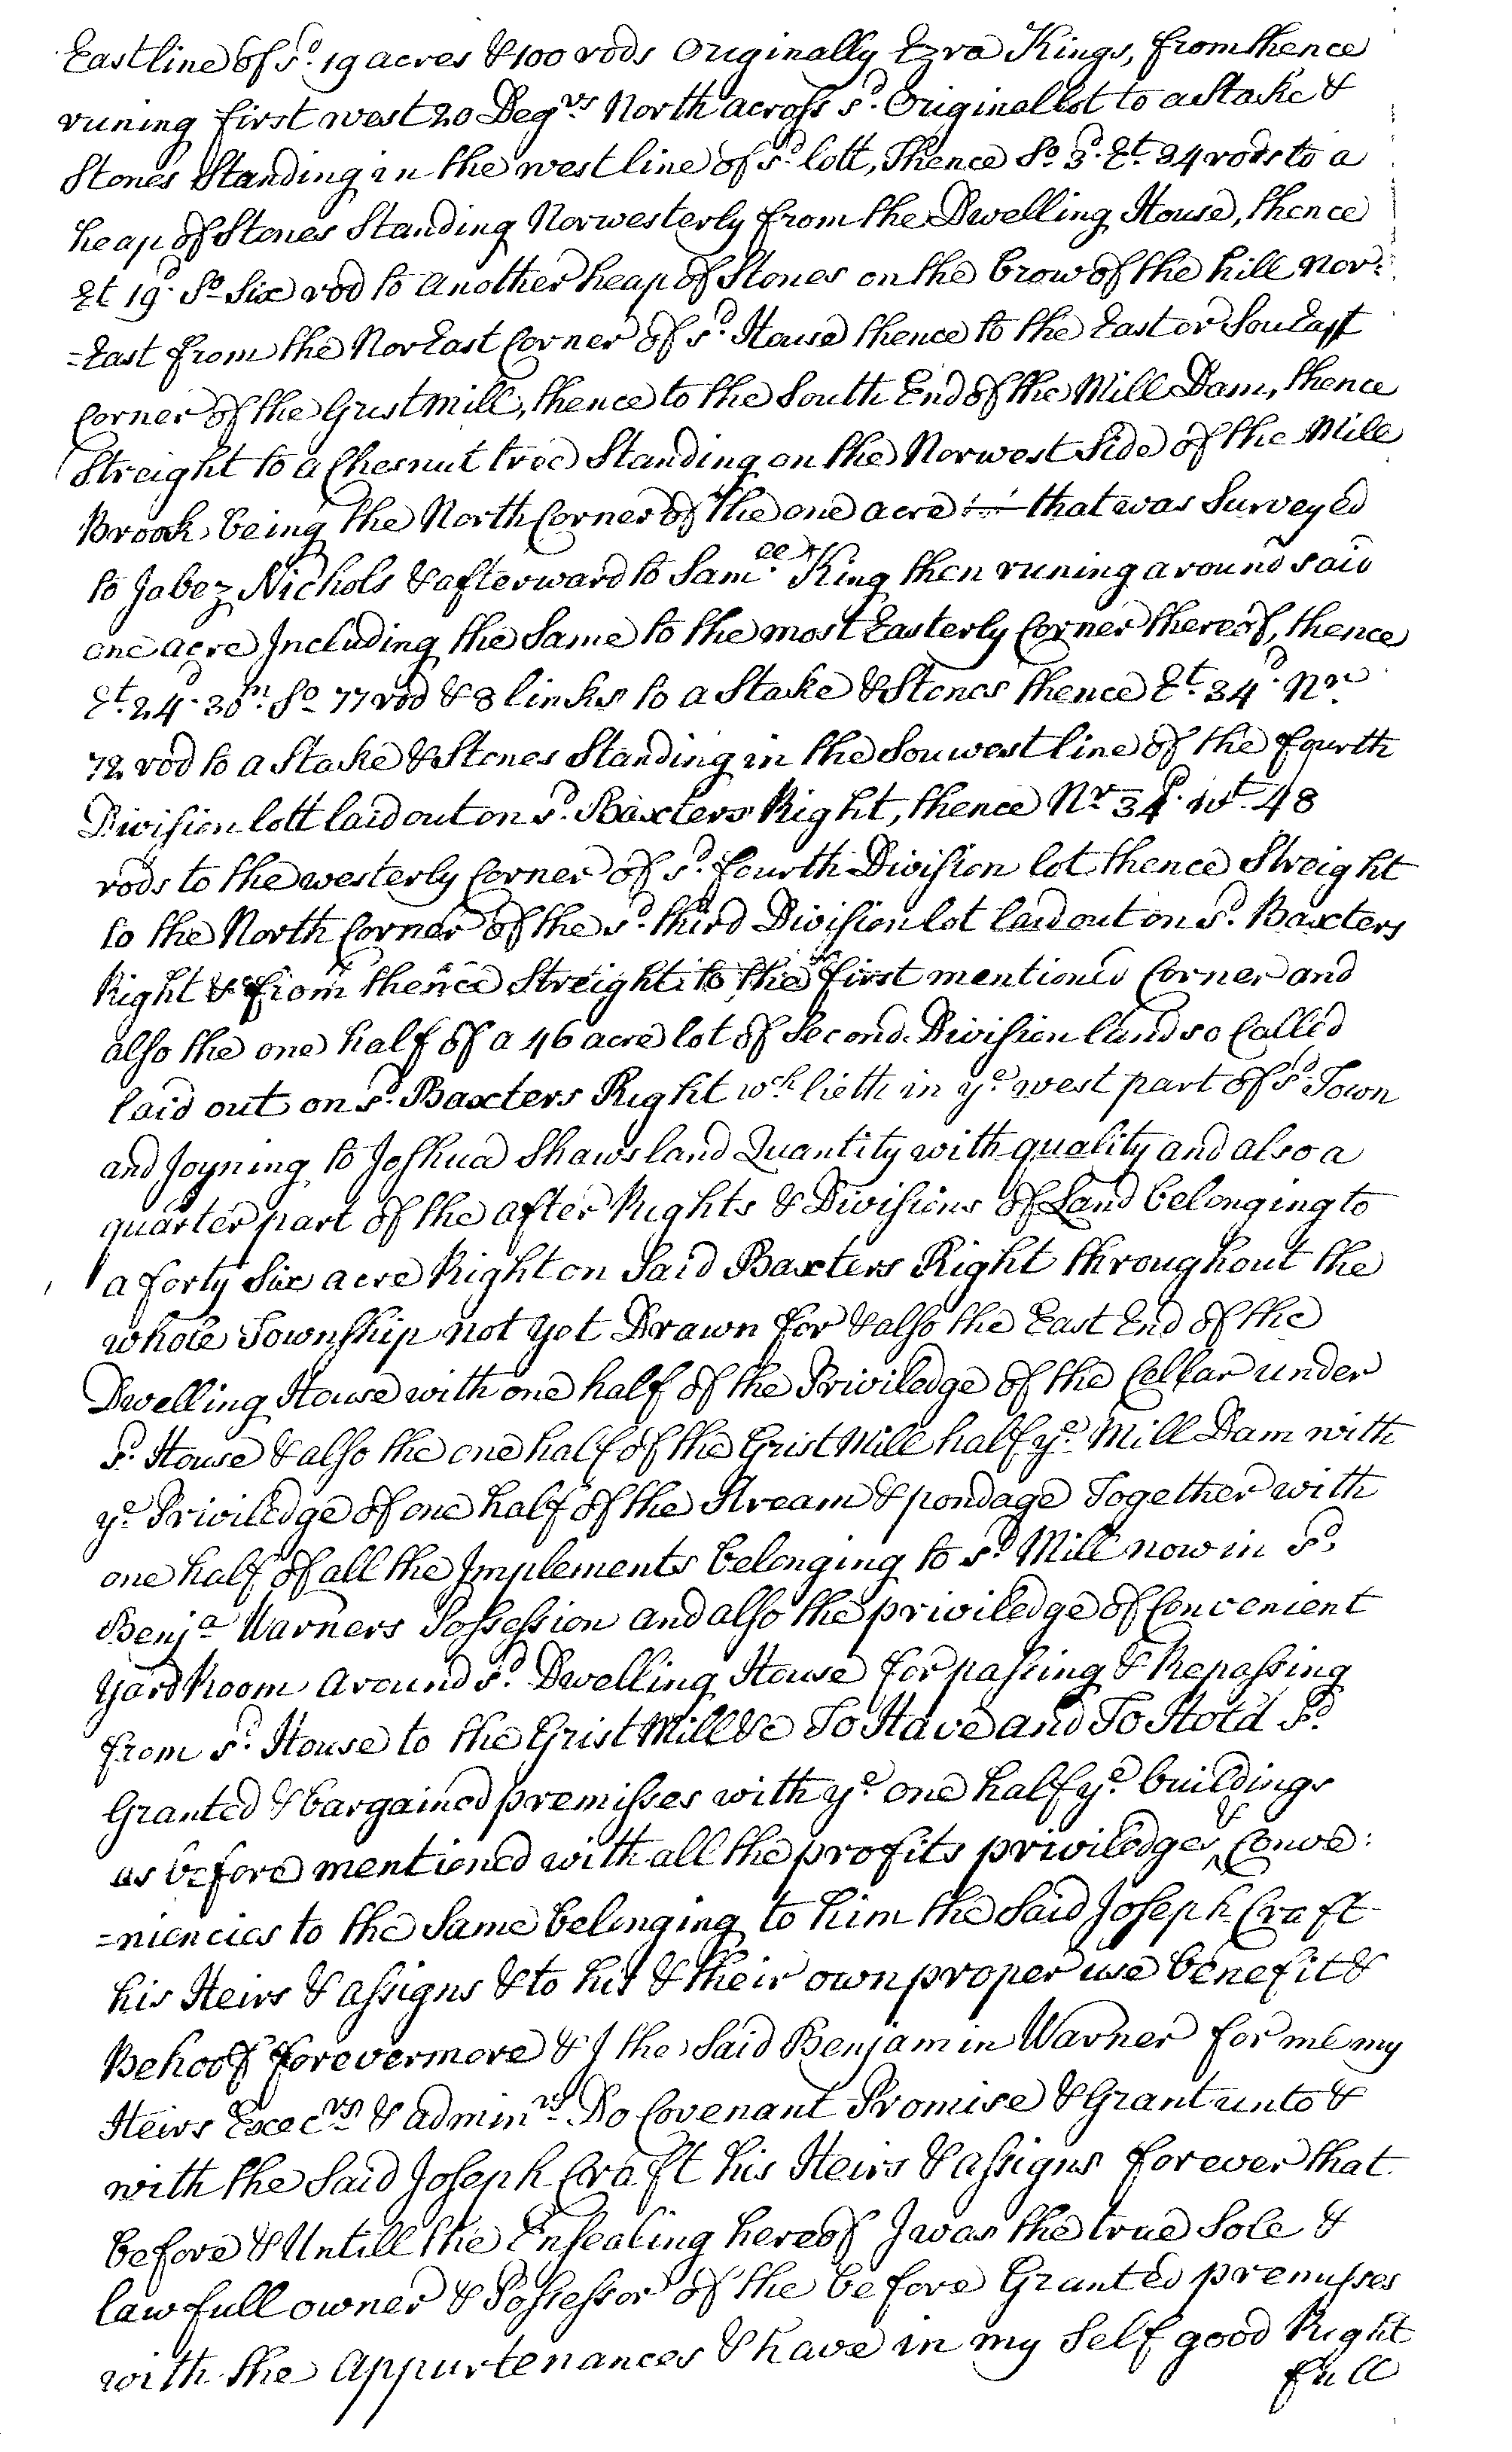 East line of sd. 19 acres & 100 rods Originally Ezra Kings, from thence
runing first west 20 Degrs North across sd. Original lot to a Stake &
Stones Standing in the west line of sd lott, Thence So 3d. Et. 34 rods to a
heap of Stones Standing Norwesterly from the Dwelling House, thence
Et 19d. So Six rod to another heap of Stones on the brow of the hill Nor:
=East from the NorEast Corner of sd. House thence to the East or SouEast
Corner of the Gristmill, thence to the South End of the Mill Dam, thence
Streight to a Chesnut tree Standing on the Norwest Side of the Mill
Brook, being the North Corner of the one acre that was Surveyed
to Jabez Nichols & afterward to Samll. King then runing around said
one acre Including the Same to the most Easterly Corner thereof, thence
Et. 24d. 30m. So 77 rod & 8 links to a Stake & Stones thence Et. 34d. Nr.
72 rod to a Stake & Stones Standing in the Souwest line of the fourth
Division lott laid out on sd. Baxters Right, thence Nr 34d. Wt. 48
rods to the westerly Corner of sd. fourth Division lot thence Streight
to the North Corner of the sd. third Division lot laid out on sd. Baxters
Right & from thence Streight to the first mentioned Corner and
also the one half of a 46 acre lot of Second Division land so Called
laid out on sd. Baxters Right wch lieth in ye west part of sd. Town
and Joyning to Joshua Shaws land Quantity with quality and also a
quarter part of the after Rights & Divisions of Land belonging to
a forty Six acre Right on Said Baxters Right throughout the
whole Township not yet Drawn for & also the East End of the
Dwelling House with one half of the Priviledge of the Cellar under
sd. House & also the one half of the Grist Mill half ye. Mill Dam with
ye Priviledge of one half of the Stream & pondage Together with
one half of all the Implements belonging to sd. Mill now in sd.
Benja Warners Possession and also the priviledge of Convenient
Yard Room around sd. Dwelling House for passing & Repassing
from sd. House to the Grist Mill &c To Have and To Hold sd.
Granted & bargained premisses with ye. one half ye. buildings
as before mentioned with all the profits priviledges & Conve:
=niencies to the Same belonging to him the Said Joseph Craft
his Heirs & assigns & to his & their own proper use benefit &
Behoof forevermore & I the Said Benjamin Warner for me my
Heirs Execrs & adminrs. Do Covenant Promise & Grant unto &
with the Said Joseph Craft his Heirs & assigns forever that
before & Untill the Ensealing hereof I was the true Sole &
lawfull owner & Possessor of the before Granted premisses
with the Appurtenances & have in my Self good Right
full